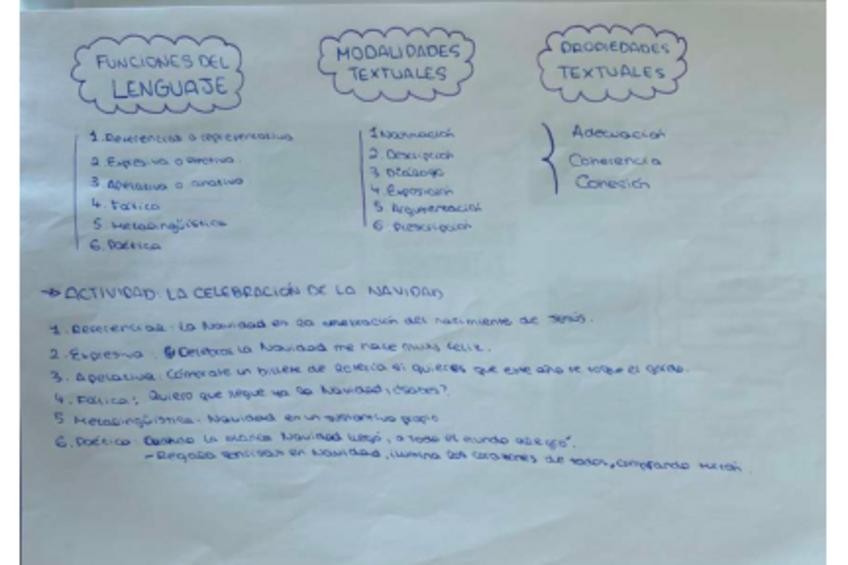 FUNCIONES DEL
LENGUAJE
1. Referencial o representativa
2. Expresiva o emotiva.
3 Apelativa o conativa
4. Fática
5. Metalingüística
6. Poética
MODALIDADES
TEXTUALES
1 Narración
2. Descripción
3 Diálogo
4. Exposición
5. Argumentación
6. Prescripción
PROPIEDADES
TEXTUALES
Adecuación
Coherencia
Cohesión
→ ACTIVIDAD: LA CELEBRACIÓN DE LA NAVIDAD
1. Referencial: La Navidad es la celebración del nacimiento de Jesús.
2. Expresiva: Celebrar la Navidad me hace muy feliz.
3. Apelativa: Cómprate un billete de lotería si quieres que este año te toque el gordo.
4. Fática: Quiero que llegue ya la Navidad, ¿sabes?
5 Metalingüística: Navidad es un sustantivo propio.
6. Poética: Cuando la blanca Navidad llegó, a todo el mundo alegró".
- Regala sonrisas en Navidad, ilumina los corazones de todos, comprando